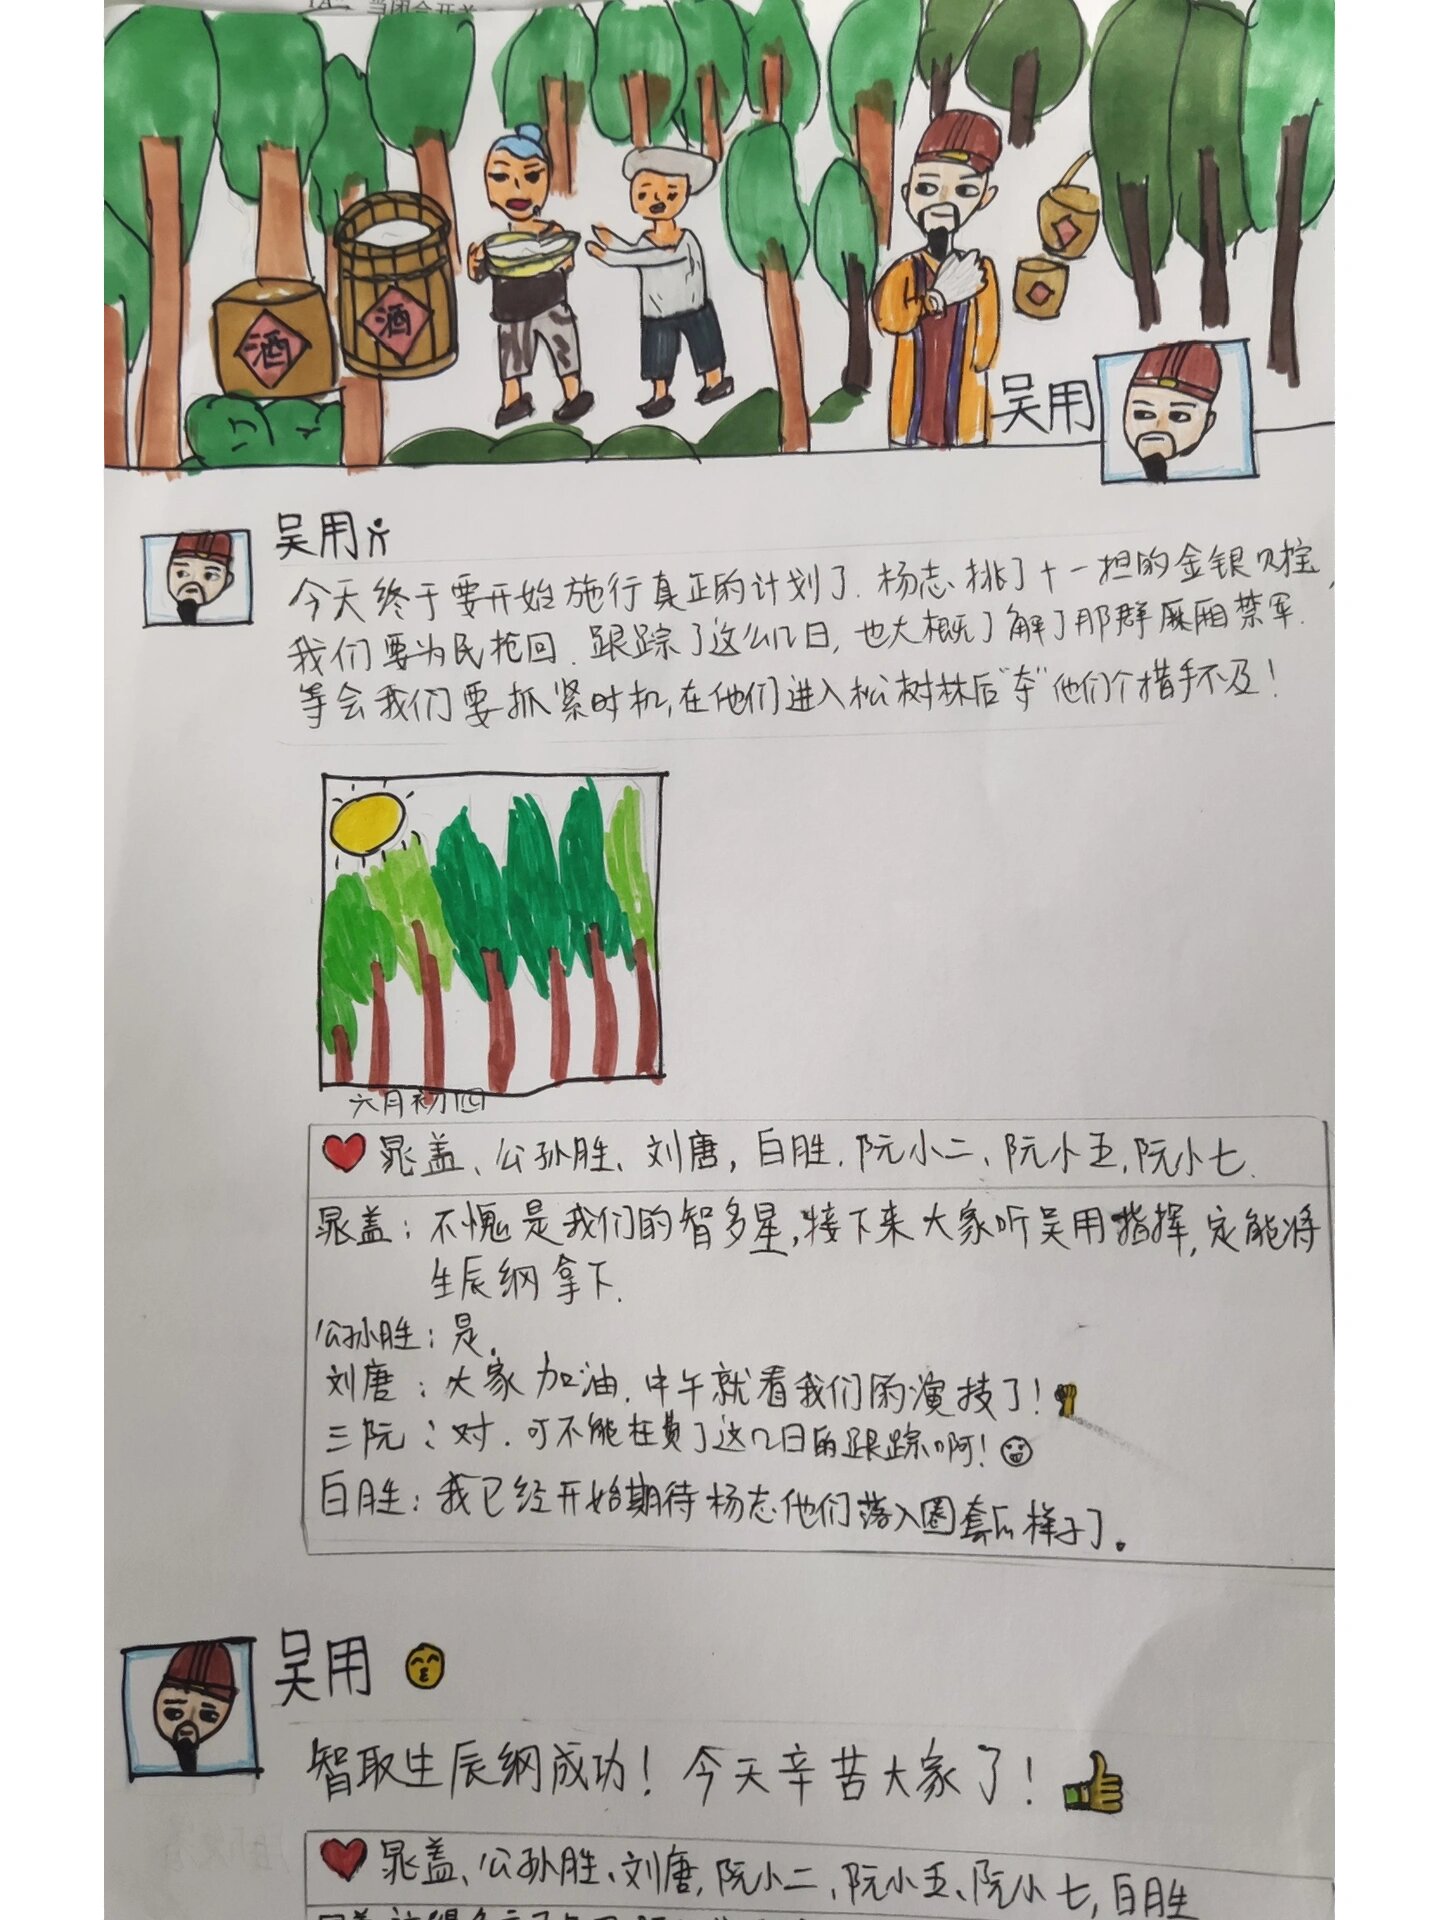 酒
酒
吴用
吴用
今天终于要开始施行真正的计划了.杨志挑了十一担的金银贝宝,
我们要为民抢回.跟踪了这么几日,也大概了解了那群厎厢禁军.
等会我们要抓紧时机,在他们进入松树林后"夺"他们个措手不及!
六月初四
晁盖、公孙胜、刘唐,白胜.阮小二、阮小五,阮小七.
晁盖:不愧是我们的智多星,接下来大家听吴用指挥,定能将
生辰纲拿下.
公孙胜:是.
刘唐:大家加油.中午就看我们的演技了!
三阮:对.可不能枉费了这几日的跟踪啊!
白胜:我已经开始期待杨志他们落入圈套的样子了。
吴用
智取生辰纲成功!今天辛苦大家了!
晁盖、公孙胜、刘唐,阮小二、阮小五、阮小七,白胜